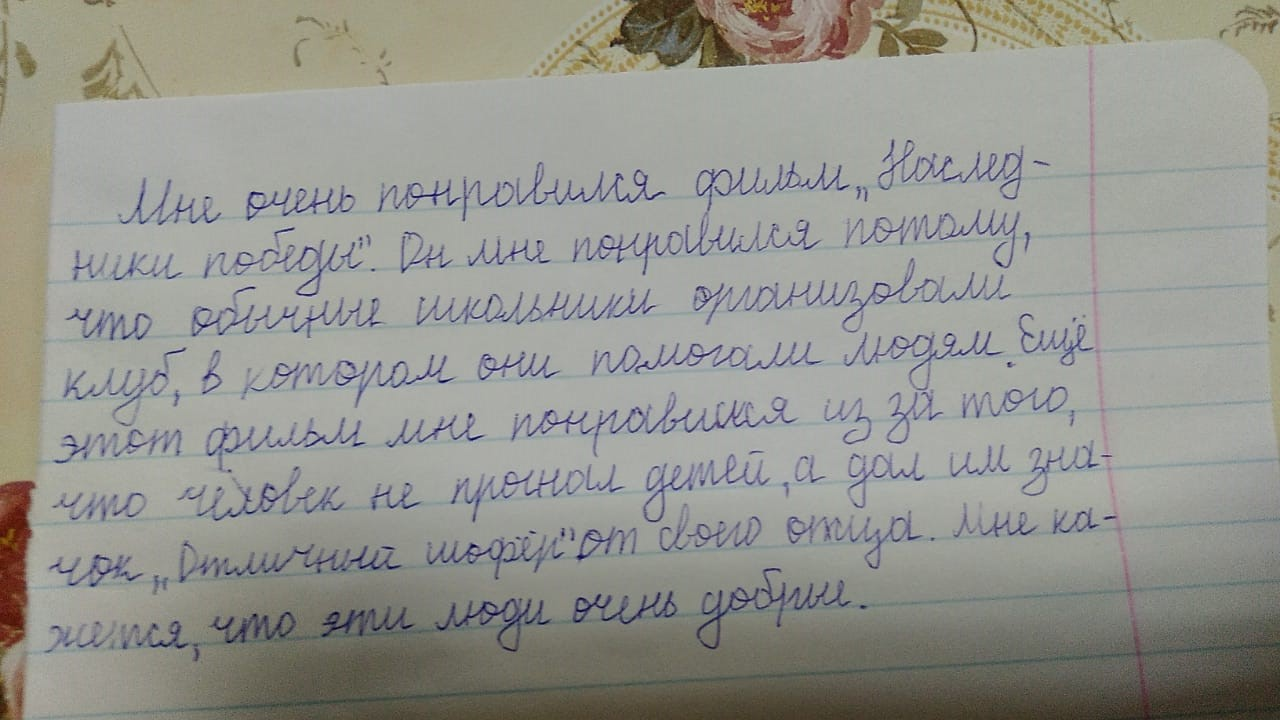 Мне очень понравился фильм „Наслед-
ники победы". Он мне понравился потому,
что обычные школьники организовали
клуб, в котором они помогали людям. Ещё
этот фильм мне понравился из за того,
что человек не прогнал детей, а дал им зна-
чок „Отличный шофёр" от своего отца. Мне ка-
жется, что эти люди очень добрые.